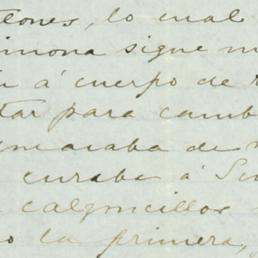 tones, lo cual
imona sigue m
á cuerpo de
tar para camb
acaba de
curaba á Su
calzoncillos
o la primera,